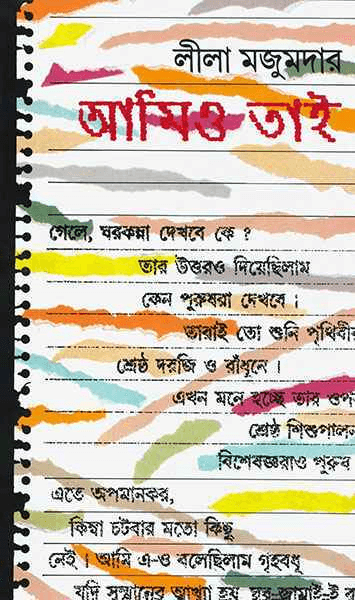 লীলা মজুমদার
আমিও তাই
গেলে, ঘরকন্না দেখবে কে ?
তার উত্তরও দিয়েছিলাম
কেন পুরুষরা দেখবে ।
তারাই তো শুনি পৃথিবীর
শ্রেষ্ঠ দরজি ও রাঁধুনে ।
এখন মনে হচ্ছে তার ওপর
শ্রেষ্ঠ শিশুপালন
বিশেষজ্ঞরাও পুরুষ
এতে অপমানকর,
কিম্বা চটবার মতো কিছু
নেই । আমি এ-ও বলেছিলাম গৃহবধূ
যদি সম্মানের আখ্যা হয়, ঘর-জামাই-ই